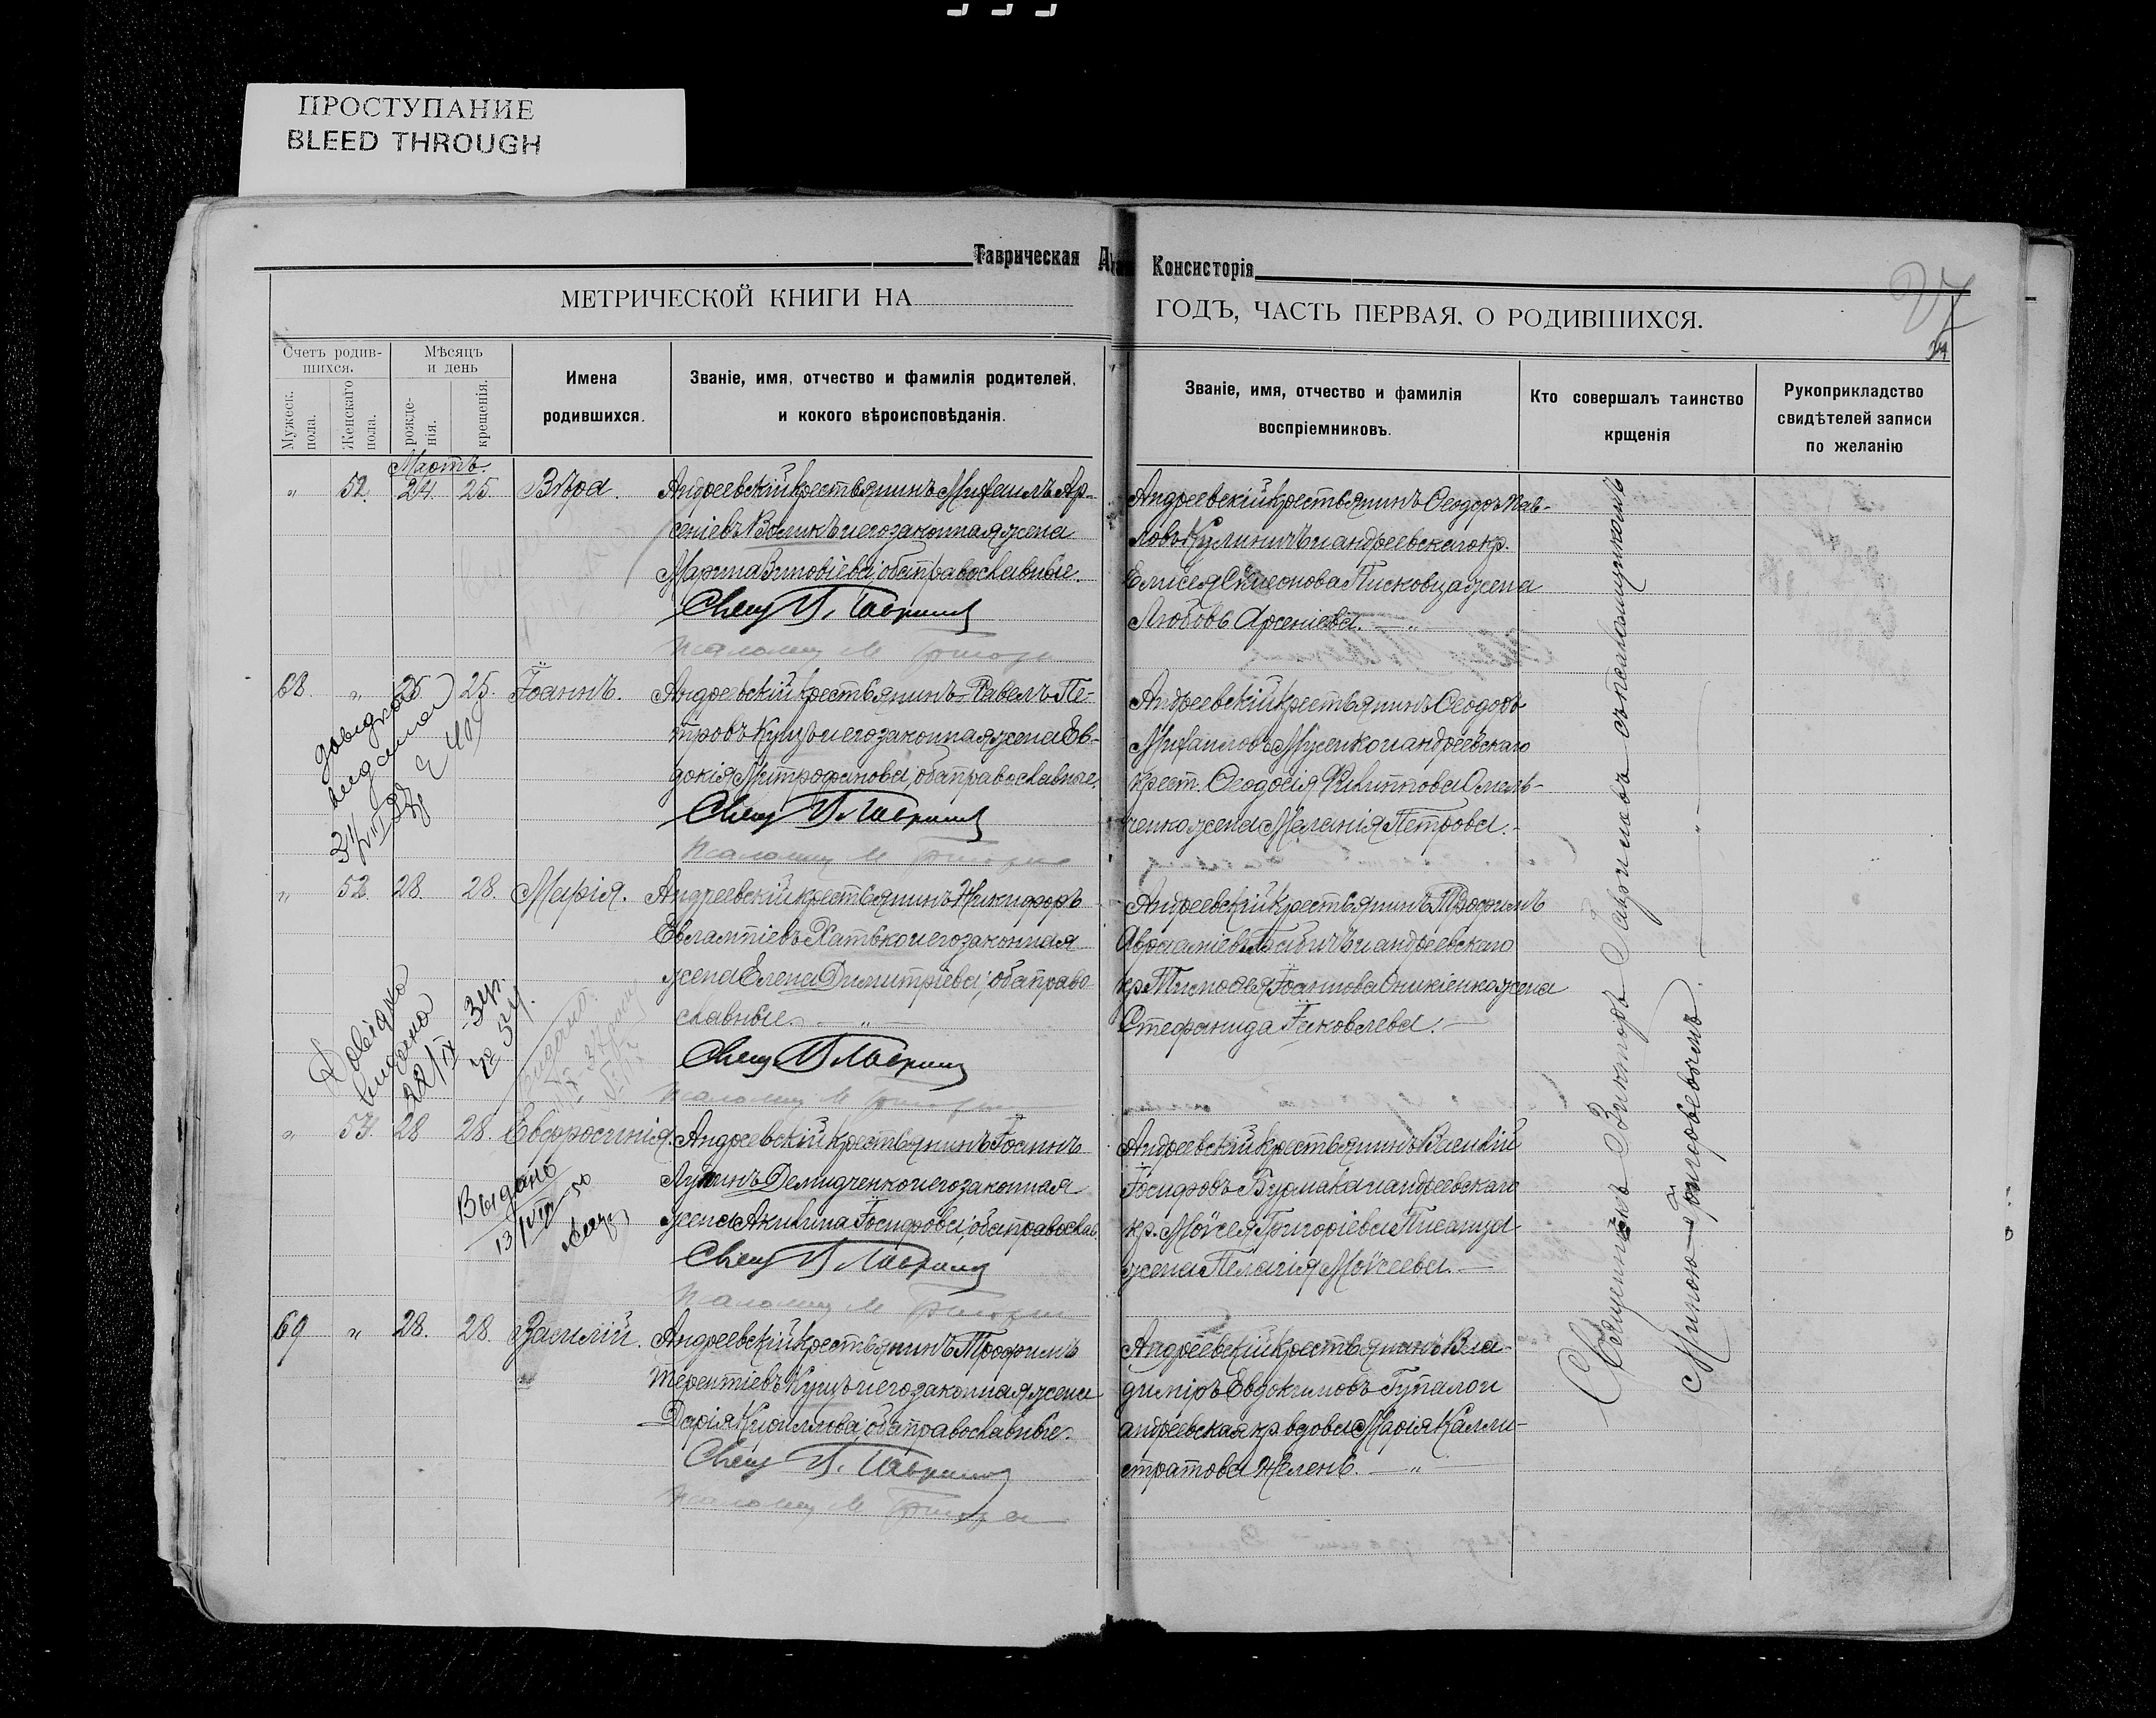 ПРОСТУПАНИЕ
BLEED THROUGH
Таврическая Консисторія
МЕТРИЧЕСКОЙ КНИГИ НА
ГОДЪ, ЧАСТЬ ПЕРВАЯ, О РОДИВШИХСЯ.
27
Счетъ родив-
шихся.
Мужеск.
пола.
Женскаго
пола.
Мѣсяцъ
и день
рожде-
нія.
крещенія.
Имена
родившихся.
Званіе, имя, отчество и фамилія родителей,
и кокого вѣроисповѣданія.
Званіе, имя, отчество и фамилія
воспріемниковъ.
Кто совершалъ таинство
крщенія
Рукоприкладство
свидѣтелей записи
по желанію
Мартъ.
" 52. 24. 25. Вѣра. Андреевскій крестьянинъ Михаилъ Ар-
сеніевъ Воликъ и его законная жена
Марина Зиновіева, оба православные.
Свящ В. Гавриловъ
Псаломщ М Григор
Андреевскій крестьянинъ Ѳеодоръ Пав-
ловъ Кулиничъ и андреевскаго кр.
Елисея Симеонова Писковца жена
Любовь Арсеніева. — "
68. " 25. 25. Іоаннъ. Андреевскій крестьянинъ Павелъ Пе-
тровъ Куцъ и его законная жена Ев-
докія Митрофанова, оба православные.
Свящ В. Гавриловъ
Псаломщ М Григор
довидка
видана
Андреевскій крестьянинъ Ѳеодоръ
Михаиловъ Мусенко и андреевскаго
крест. Ѳеодосія Филиппова Омель-
ченко жена Меланія Петрова.
" 52. 28. 28. Марія. Андреевскій крестьянинъ Никифоръ
Евлампіевъ Хатько и его законная
жена Елена Димитріева, оба право
славные. — "
Свящ В Гавриловъ
Псаломщ М Григор
Довідка
видана
22/IX
Андреевскій крестьянинъ Трофимъ
Авраміевъ Бабичъ и андреевскаго
кр. Тимоѳея Іоаннова Оникіенко жена
Стефанида Іаковлева.
" 54. 28 28. Евфросинія. Андреевскій крестьянинъ Іоаннъ
Лукинъ Демидченко и его законная
жена Акилина Іосифова, оба православ.
Свящ В Гавриловъ
Псаломщ М Григор
Выдано
13/VIII 50
Андреевскій крестьянинъ Василій
Іосифовъ Бурмака и андреевскаго
кр. Моѵсея Григоріева Писанца
жена Пелагія Моѵсеева.
69 " 28. 28. Василій. Андреевскій крестьянинъ Трофимъ
Терентіевъ Куцъ и его законная жена
Дарія Кириллова, оба православные.
Свящ В. Гавриловъ
Псаломщ М Григор
Андреевскій крестьянинъ Вла-
диміръ Евдокимовъ Гупало и
андреевская кр. вдова Марія Калли-
стратова Желень. — "
Священникъ Викторъ Гавриловъ съ псаломщикомъ
Миною Григоровымъ.